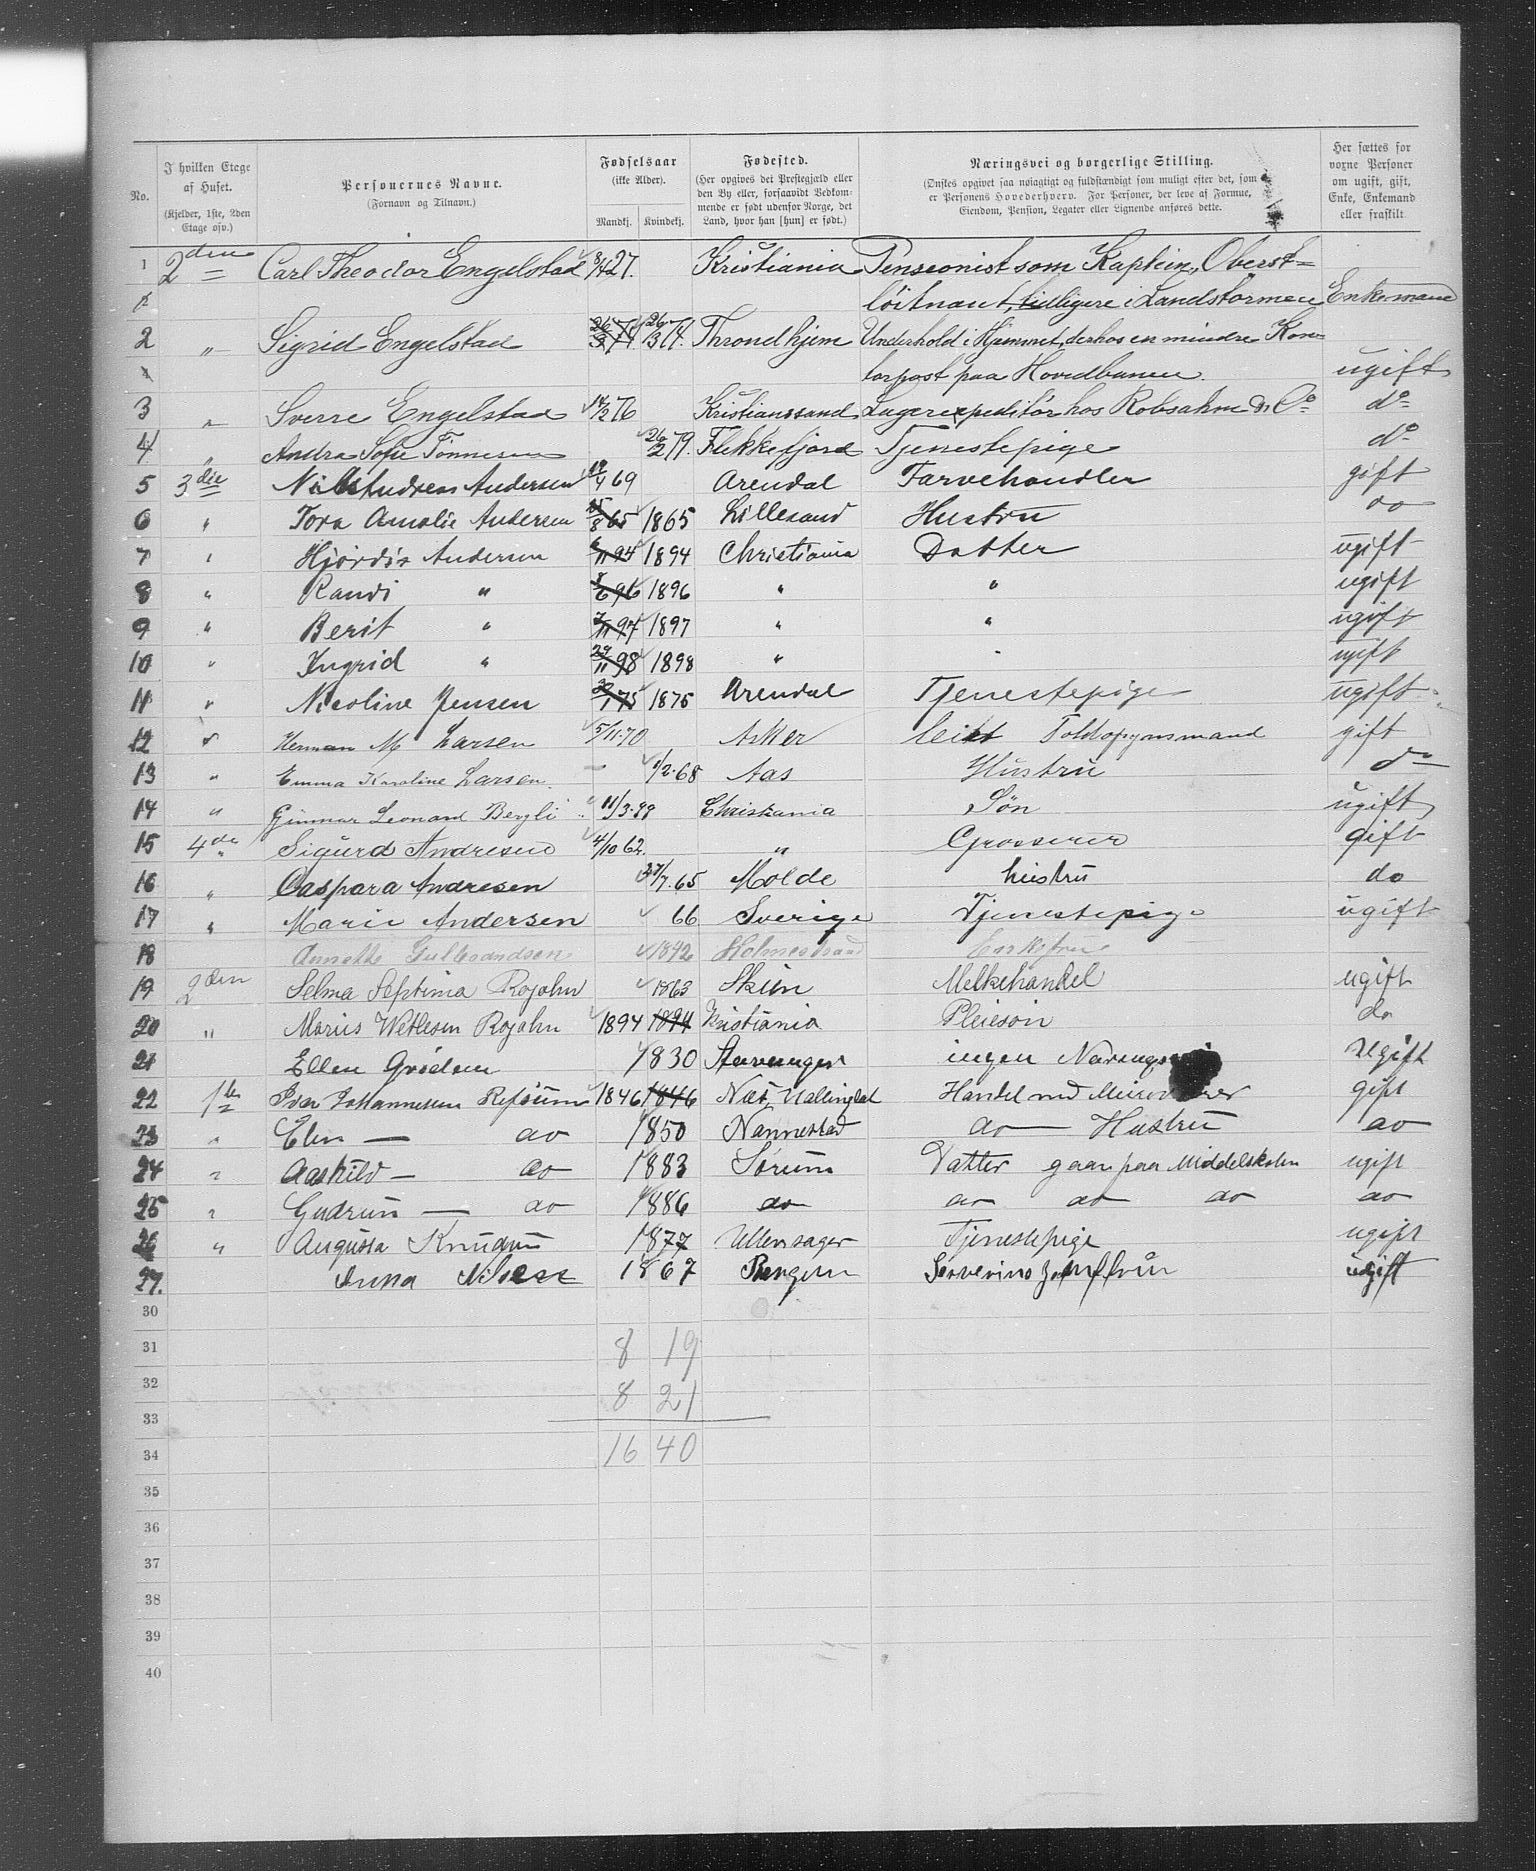 No.
I hvilken Etage af Huset.
(Kjelder, 1ste, 2den Etage osv.)
Personernes Navne.
(Fornavn og Tilnavn.)
Fødselsaar
(ikke Alder).
Mandkj. Kvindekj.
Fødested.
(Her opgives det Prestegjæld eller den By eller, forsaavidt Vedkommende er født udenfor Norge, det Land, hvor han [hun] er født.)
Næringsvei og borgerlige Stilling.
(Ønskes opgivet saa nøiagtigt og fuldstændigt som muligt efter det, som er Personens Hovederhverv. For Personer, der leve af Formue, Eiendom, Pension, Legater eller Lignende anføres dette.
Her sættes for voxne Personer om ugift, gift, Enke, Enkemand eller fraskilt
1 2den Carl Theodor Engelstad 8/4 27. Kristiania Pensionist som Kaptein, Oberst-
løitnant, tidligere i Landstormen Enkemand
2 " Sigrid Engelstad 26/3 74. 26/3 74. Throndhjem Underhold i Hjemmet, derhos en mindre Kon-
torpost paa Hovedbanen. ugift
3 " Sverre Engelstad 14/2 76 Kristianssand Lagerexpeditør hos Robsahm & Co do
4 " Andra Sofie Tønnesen 26/2 79. Flekkefjord Tjenestepige do
5 3die Nils Andreas Andersen 19/4 69 Arendal Farvehandler gift
6 " Tora Amalie Andersen 15/8 65 1865 Lillesand Hustru do
7 " Hjørdis Andersen 6/11 94 1894 Christiania Datter ugift
8 " Randi " 3/6 96 1896 " " ugift
9 " Berit " 7/11 97 1897 " " ugift
10 " Ingrid " 29/11 98 1898 " " ugift
11 " Nicoline Jensen 20/1 75 1875 Arendal Tjenestepige ugift
12 " Herman M Larsen 5/11.70 Asker Toldopsynsmand gift
13 " Emma Karoline Larsen 1/2.68 Aas Hustru do
14 " Gunnar Leonard Bergli 11/3.99 Christiania Søn ugift
15 4de Sigurd Andresen 4/10 62 " Grosserer gift
16 " Caspara Andresen 27/7.65 Molde hustru do
17 " Marie Andersen 66 Sverige Tjenestepige ugift
18 Annette Gulbrandsen 1842 Holmestrand Enkefrue
19 2den Selma Septima Rojahn 1863 Skien Melkehandel ugift
20 " Marius Wetlesen Rojahn 1894 1894 Kristiania Pleiesøn do
21 Ellen Grødem 1830 Stavanger ingen Næringsvei Ugift
22 1te Iver Johannesen Refsum 1846 1846 Næs Hallingdal Handel med Meierivarer gift
23 " Elen — do 1850 Nannestad do — Hustru do
24 " Aashild — do 1883 Sørum Datter gaar paa Middelskolen ugift
25 " Gudrun — do 1886 do do do do do
26 " Augusta Knudsen 1877 Ullensager Tjenestepige ugift
27. Anna Nilsen 1867 Bergen ugift
30
31 8 19
32 8 21
33
34 16 40
35
36
37
38
39
40